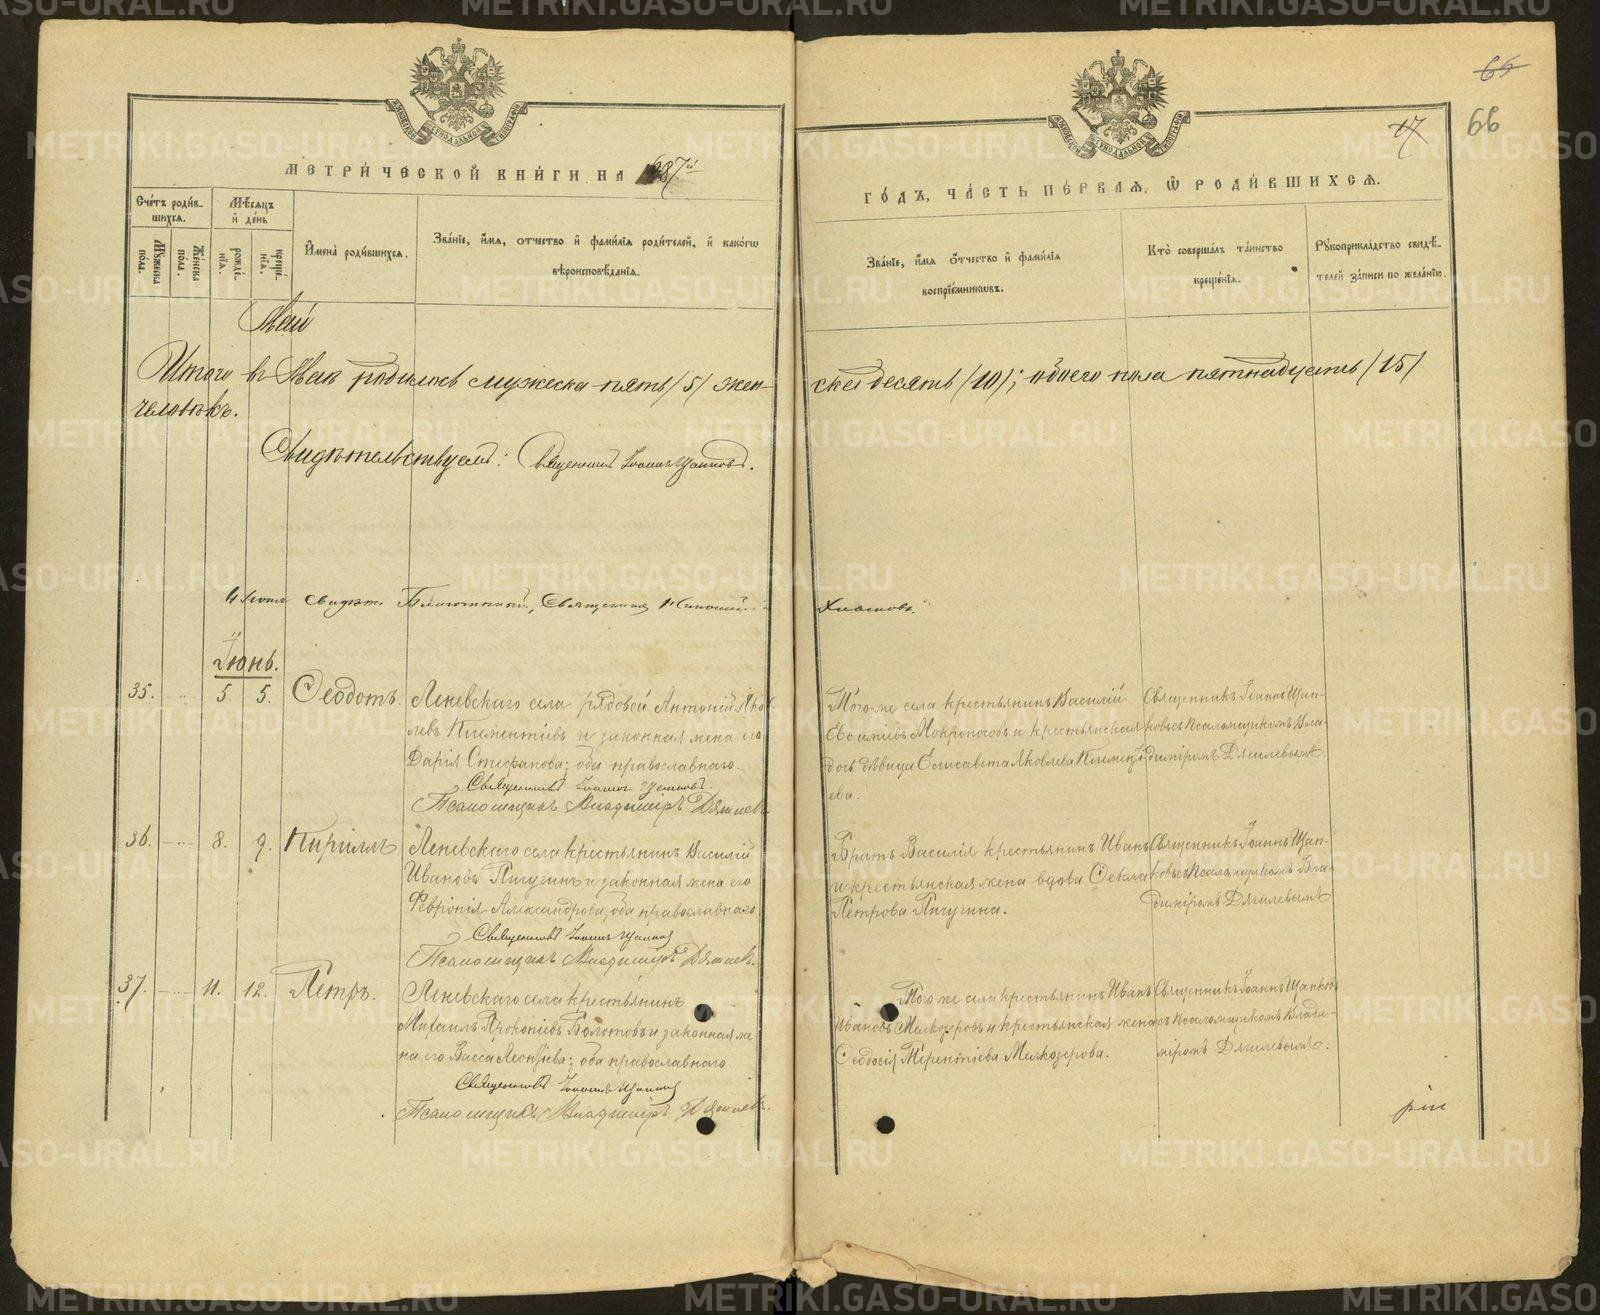 65
66
17
МЕТРИ́ЧЕСКОЙ КНИ́ГИ НА 1887й
ГО́ДЪ, ЧА́СТЬ ПЕ́РВАЯ, Ѡ РОДИ́ВШИХСЯ.
Сче́тъ роди́вшихся.
Мѣсяцъ и́ де́нь
Му́жеска по́ла.
Же́нска по́ла.
рожде́нїя.
креще́нїя.
И҆мена̀ роди́вшихся.
Зва́нїе, и҆́мя, о́тчество и҆ фами́лїя роди́телей, и҆ како́гѡ вѣроисповѣ́данїя.
Зва́нїе, и҆́мя о҆́тчество и҆ фами́лїя воспрїе́мникѡвъ.
Кто̀ соверша́лъ та́инство креще́нїя.
Рꙋкоприкла́дство свидѣ́телей за́писи по жела́нїю.
Май
Итого въ Маѣ родилось мужеска пять /5/ жен-
ска десять /10/; обоего пола пятнадцать /15/
человѣкъ.
Свидѣтельствуемъ: Священникъ Іоаннъ Цапковъ.
4 Іюня свидѣт. Благочинный, Священникъ
Іюнь.
35. 5 5. Ѳеодотъ.
Леневскаго села рядовой Антоній Яков-
левъ Климентьевъ и законная жена его
Дарія Стефанова; оба православнаго.
Священникъ Іоаннъ Цапковъ.
Псаломщикъ Владиміръ Дягилевъ
Того-же села крестьянинъ Василій
Мокроносовъ и крестьянская
дочь дѣвица Елисавета Яковлева Клименть-
ева.
Священникъ Іоаннъ Цап-
ковъ съ псаломщикомъ Вла-
диміромъ Дягилевымъ.
36. 8. 9. Кириллъ
Леневскаго села крестьянинъ Василій
Ивановъ Пичугинъ и законная жена его
Февронія Александрова, оба православнаго
Священникъ Іоаннъ Цапковъ
Псаломщикъ Владиміръ Дягилевъ.
Братъ Василія крестьянинъ Иванъ
и крестьянская жена вдова Ѳекла
Петрова Пичугина.
Священникъ Іоаннъ Цап-
ковъ съ псаломщикомъ Вла-
диміромъ Дягилевымъ
37. 11. 12. Петръ.
Леневскаго села крестьянинъ
Михаилъ Прокопіевъ Болотовъ и законная же-
на его Васса Леонтіева; оба православнаго
Священникъ Іоаннъ Цапковъ
Псаломщикъ Владиміръ Дягилевъ.
Того-же села крестьянинъ Иванъ
Ивановъ Мелкозеровъ и крестьянская жена
Ѳеодосія Терентіева Мелкозерова.
Священникъ Іоаннъ Цапковъ
съ псаломщикомъ Влади-
міромъ Дягилевымъ.
METRIKI.GASO-URAL.RU